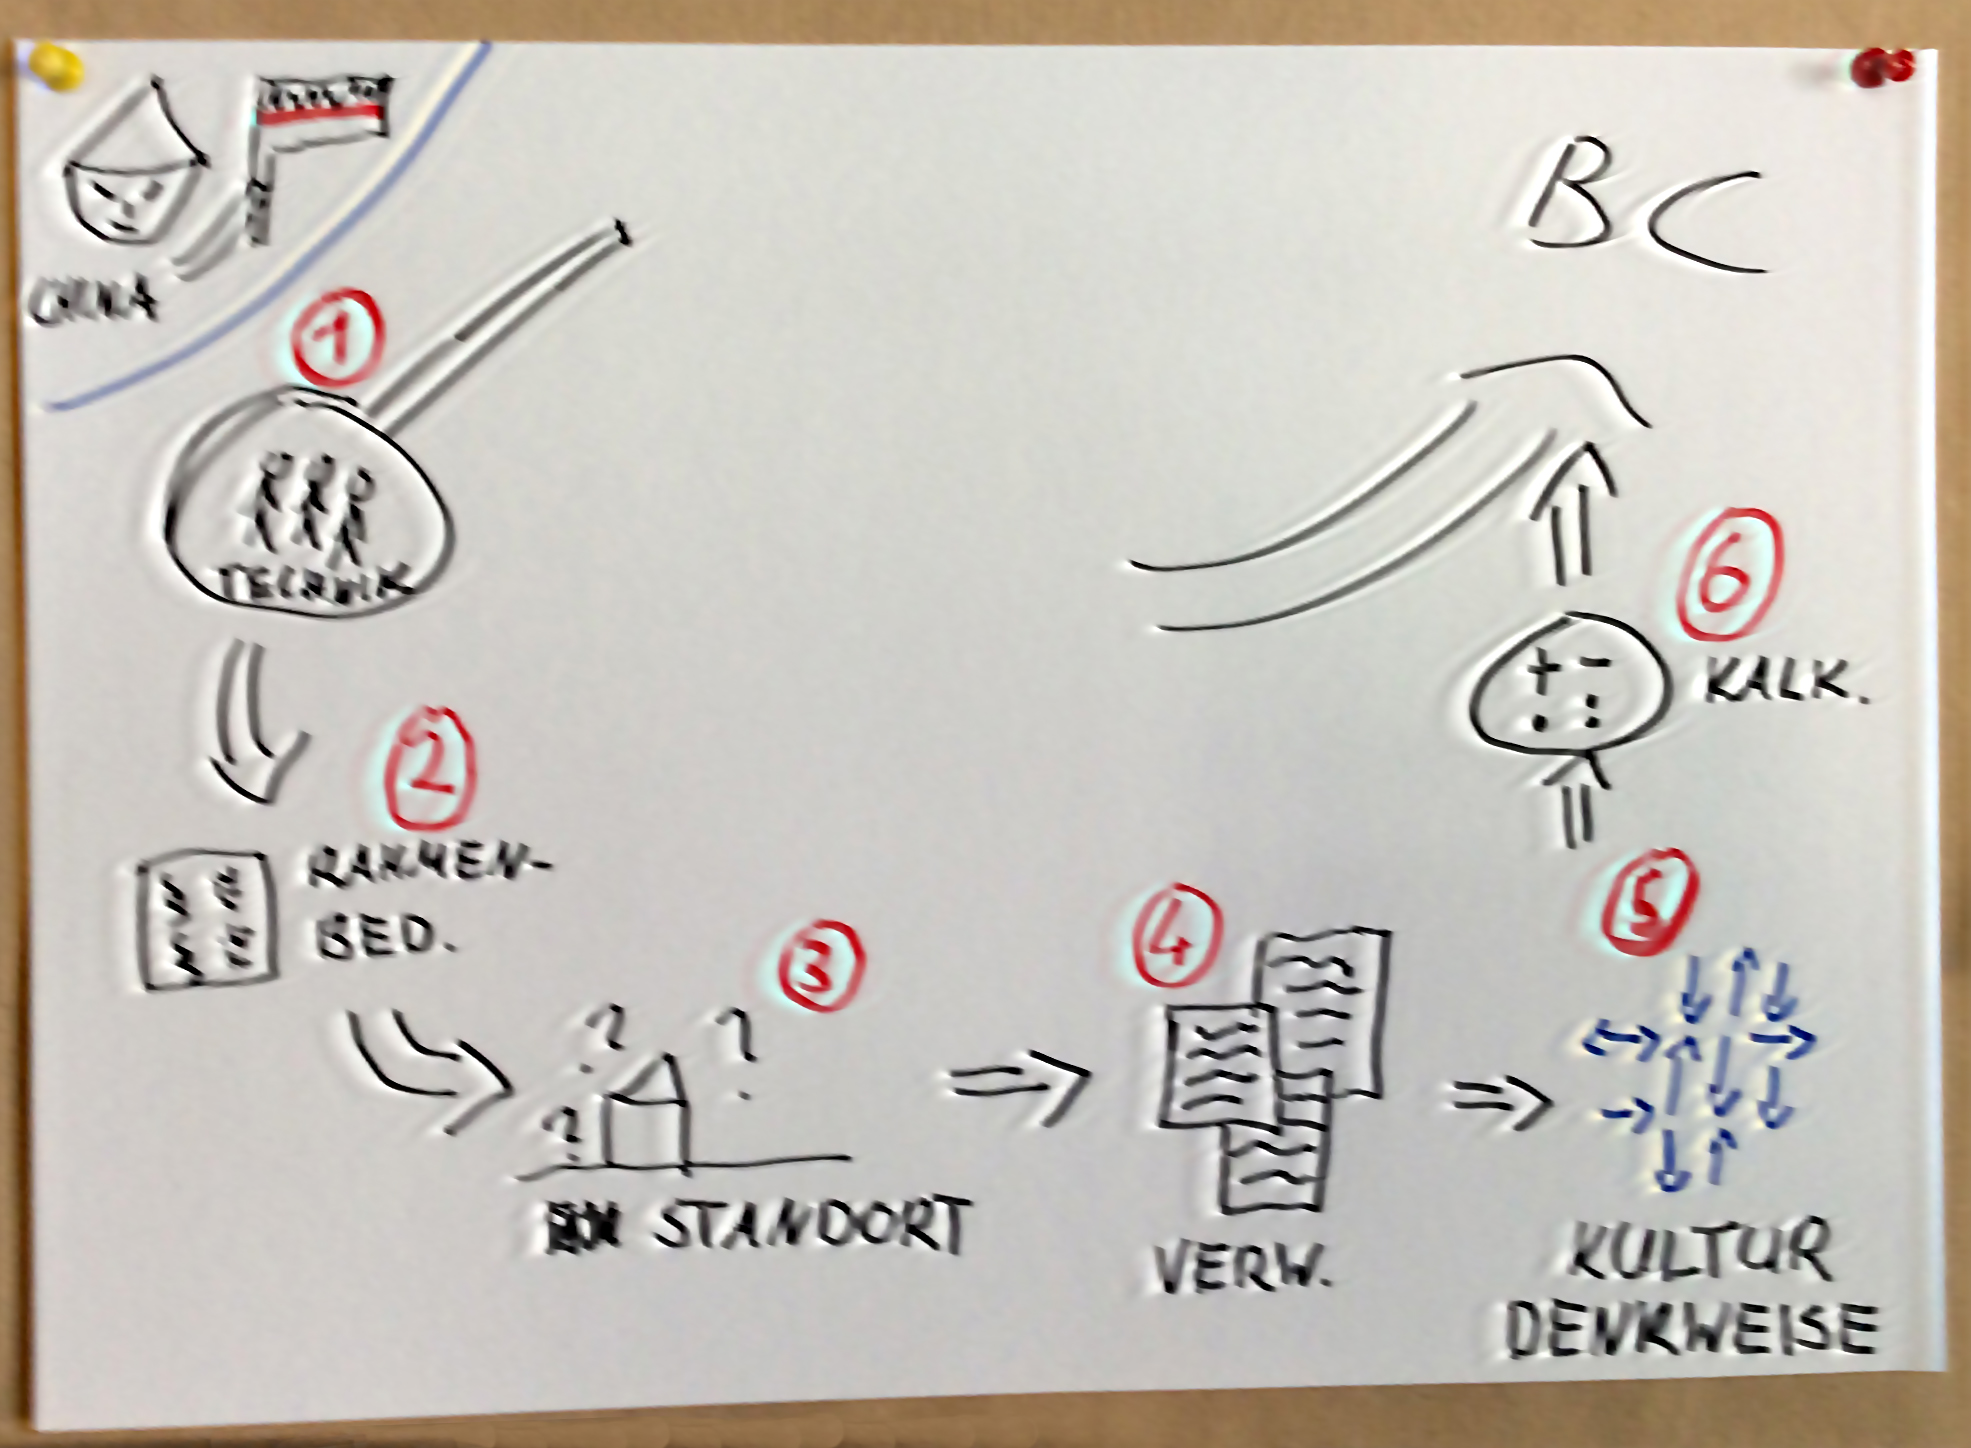 CHINA
BC
1
TECHNIK
2
RAHMEN-
BED.
3
? ? ?
STANDORT
4
VERW.
5
KULTUR
DENKWEISE
6
+ -
· :
KALK.